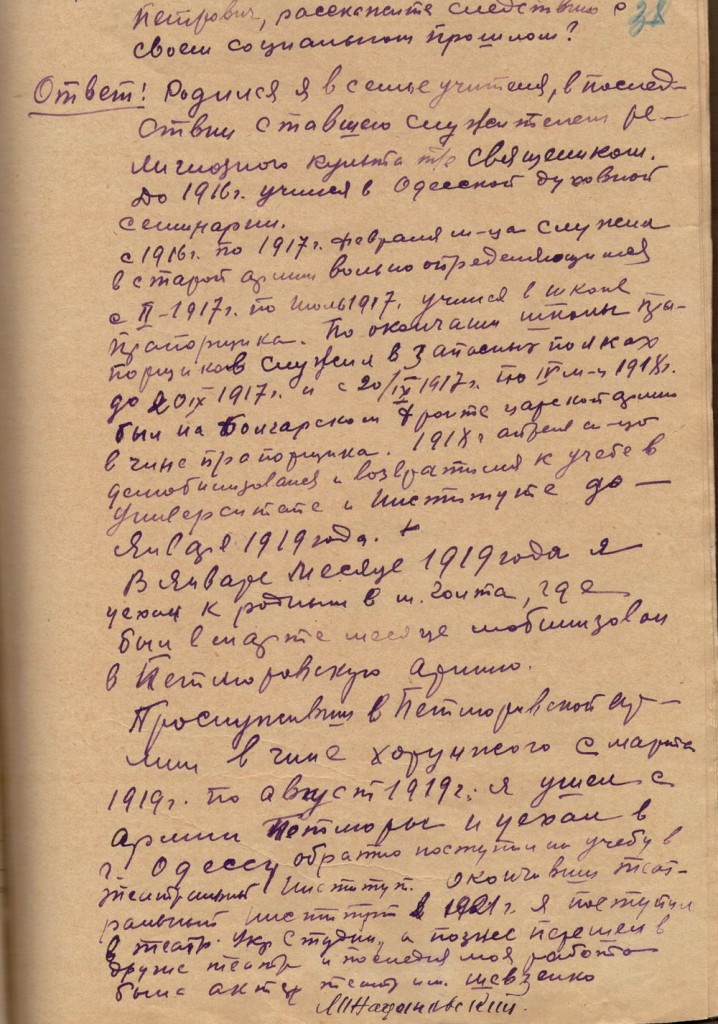 Петрович, расскажите следствию о 38
своем социальном прошлом?
Ответ: Родился я в семье учителя, в послед-
ствии ставшего служителем ре-
лигиозного культа т/е священиком.
До 1916г. учился в Одесской духовной
семинарии.
с 1916г. по 1917г. февраля м-ца служил
в старой армии вольноопределяющимся
с II-1917г. по июль 1917. учился в школе
прапорщика. По окончании школы пра-
порщиков служил в запасных полках
до 20 IX 1917г. и с 20/IX 1917г. по IV м-ц 1918г.
был на Болгарском фронте царской армии
в чине прапорщика. 1918г апреля м-ца
демобилизовался и возвратился к учебе в
университете и институте до
января 1919 года.
В январе месяце 1919 года я
уехал к родным в м. Голта, где
был в марте месяце мобилизован
в Петлюровскую армию.
Прослуживши в Петлюровской ар-
мии в чине хорунжего с марта
1919г. по август 1919г; я ушел с
армии Петлюры и уехал в
г. Одессу обратно поступил на учебу в
театральный институт. окончивши теат-
ральный институт в 1921г. я поступил
в театр. укр. студии, а позже перешел в
другие театры и последняя моя работа
была актер театр им. Шевченко